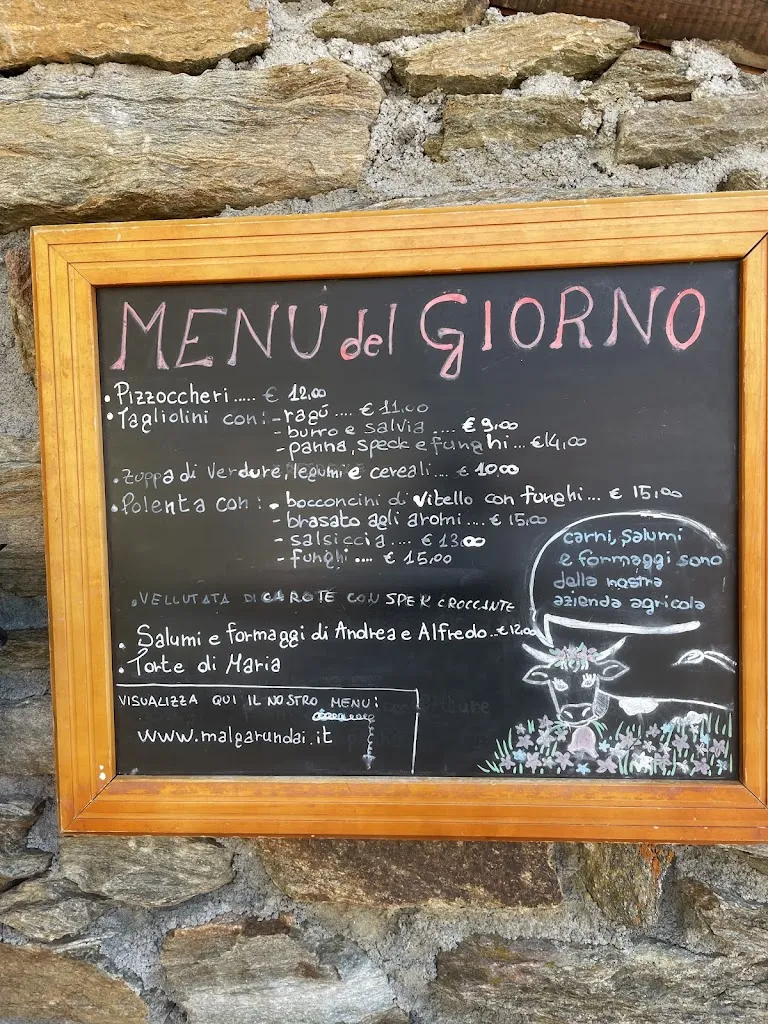 MENU del GIORNO
• Pizzoccheri..... € 12,00
• Tagliolini con: - ragú .... € 11,00
- burro e salvia .... € 9,00
- panna, speck e funghi ... €14,00
• Zuppa di verdure, legumi e cereali... € 10,00
• Polenta con: • bocconcini di vitello con funghi... € 15,00
- brasato agli aromi.... € 15,00
- salsiccia .... € 13,00
- funghi .... € 15,00
carni, salumi
e formaggi sono
della nostra
azienda agricola
• VELLUTATA DI CAROTE CON SPEK CROCCANTE
• Salumi e formaggi di Andrea e Alfredo..€12,00
• Torte di Maria
VISUALIZZA QUI IL NOSTRO MENU:
www.malgarundai.it